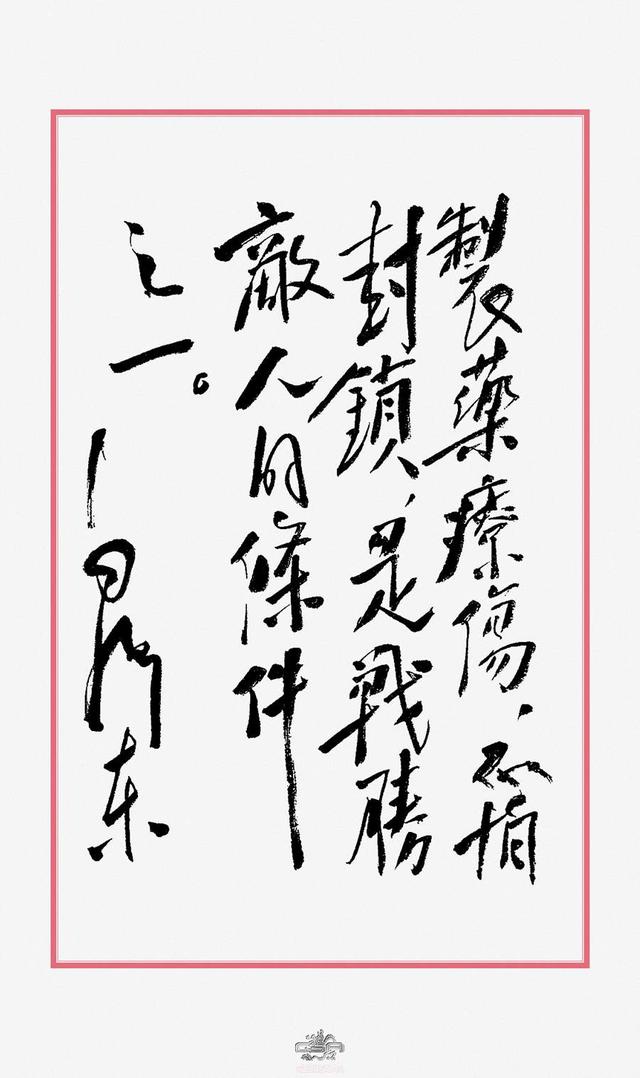 製藥療傷，不怕
封鎖，是戰勝
敵人的條件
之一。
毛澤东